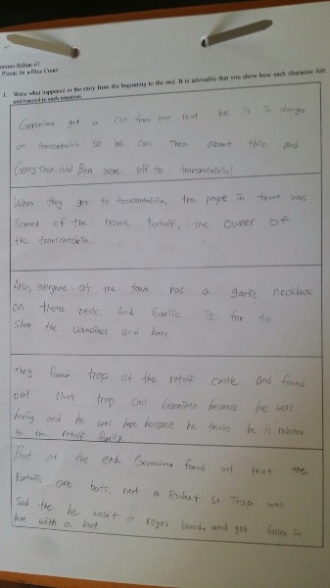 Geronimo Stilton #7
Pizzas for a Blue Count
1. Write what happened in the story from the beginning to the end. It is advisable that you show how each character felt
and reacted to each situation.
Geronimo got a call from trap that he is in danger
at transratania so he call Thea about this and
Geronimo Thea and Ben were off to transratania!
When they got to transratania, the people in town was
scared of the name Ratoff, the owner of
the transratania.
Also, everyone at the town has a garlic necklace
on there neck. And Garlic is for to
the vampires and bats.
They found trap at the ratoff castle. And found
out that trap call Geronimo because he was
and he was here because he thinks he is related
to the ratoff family
But at the end Geronimo found out that the
Ratoffs are bats. not a Rodent so Trap was
sad the he wasn't a royal blood. and got fallen in
love with a bat.